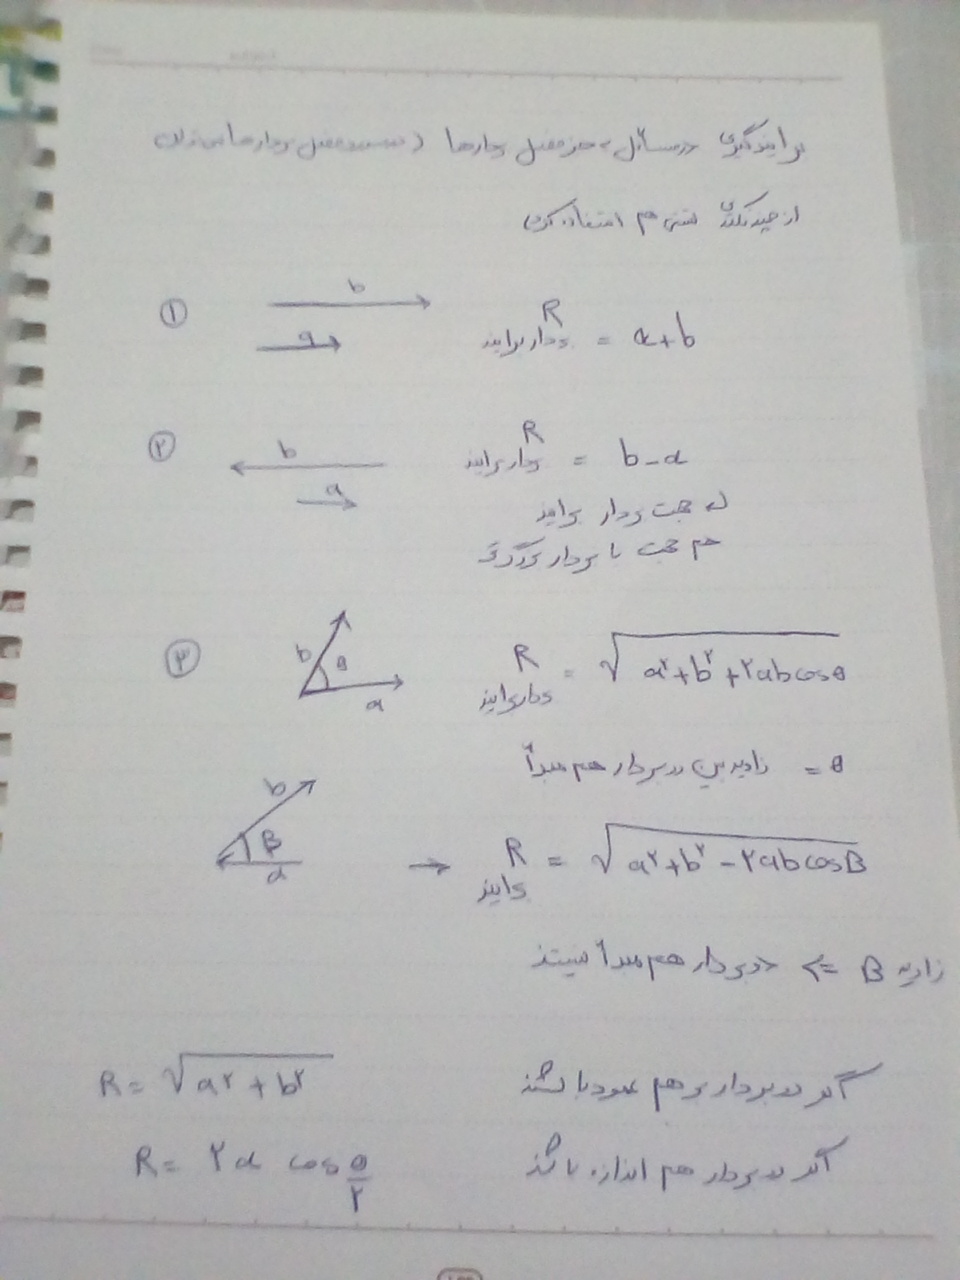 برایندگیری در مسائل به جز تفضل بردارها (در تفضل بردارها می‌توان
از همین نکات هم استفاده کرد
① b a R بردار برایند = a+b
② b a R بردار برایند = b-a
جهت بردار برایند
هم جهت با بردار بزرگتر
③ b θ a R بردار برایند = √a²+b²+۲abcosθ
θ = زاویه بین دو بردار هم مبدأ
b β a → R برایند = √a²+b²-۲abcosβ
زاویه β => دو بردار هم مبدأ نیستند
اگر دو بردار بر هم عمود باشند R = √a²+b²
اگر دو بردار هم اندازه باشند R = ۲a cos θ/۲